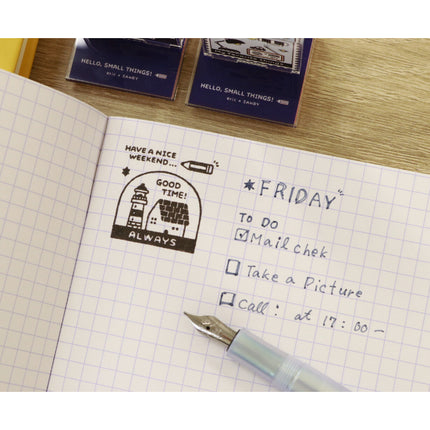 HELLO, SMALL THINGS!
HELLO, SMALL THINGS!
HAVE A NICE
WEEKEND...
GOOD
TIME!
ALWAYS
FRIDAY
TO DO
Mail chek
Take a Picture
Call : at 17:00-